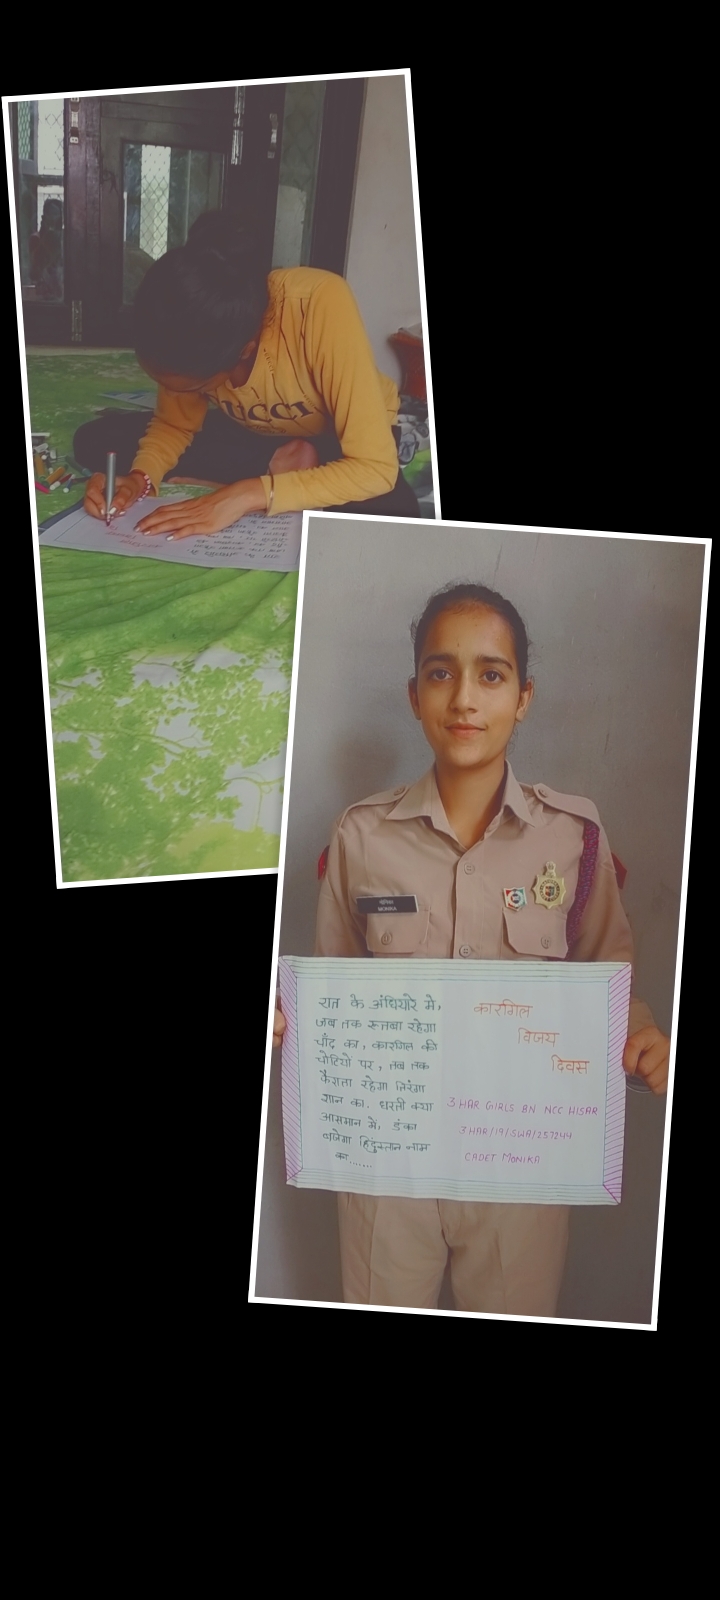 UCCI
मोनिका
MONIKA
रात के अंधियारे में,
जब तक रूतबा रहेगा
चाँद का, कारगिल की
चोटियों पर, तब तक
फैराता रहेगा तिरंगा
शान का. धरती क्या
आसमान में, डंका
बाजेगा हिंदुस्तान नाम
का.......
कारगिल
विजय
दिवस
3 HAR GIRLS BN NCC HISAR
3 HAR/19/SWA/257244
CADET MONIKA